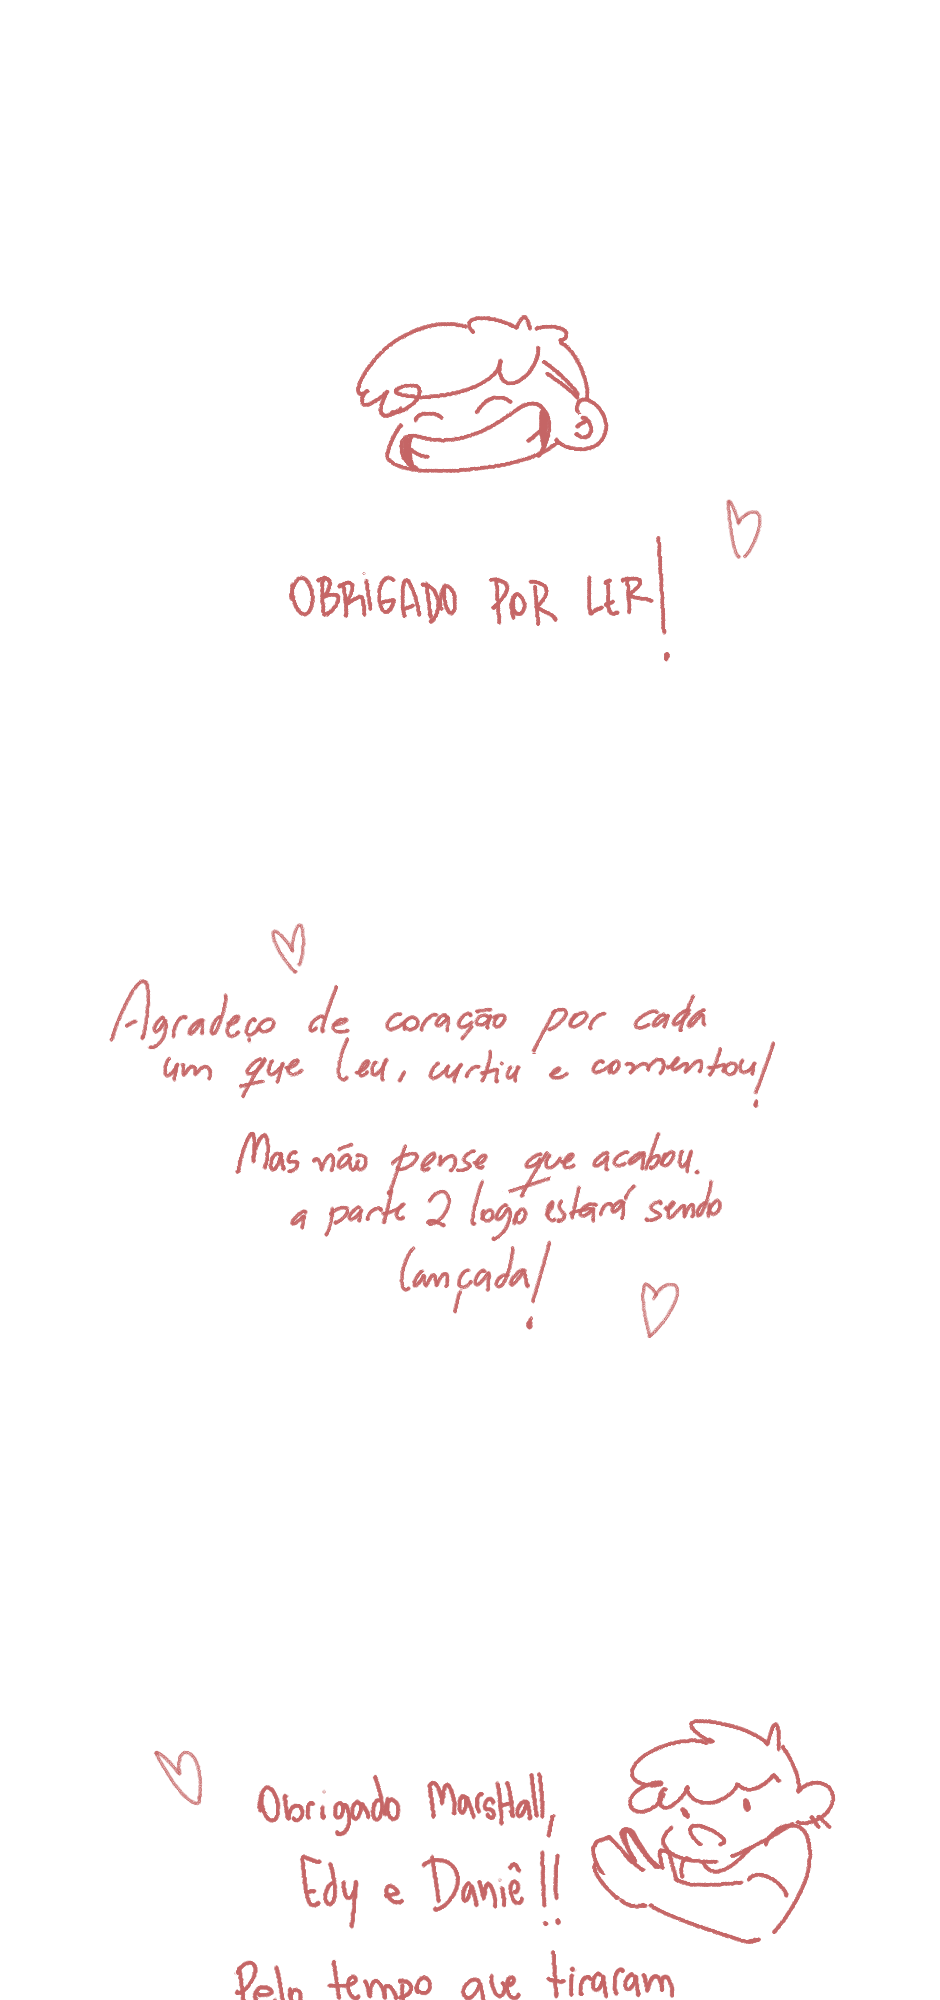 OBRIGADO POR LER!
Agradeço de coração por cada
um que leu, curtiu e comentou!
Mas não pense que acabou.
a parte 2 logo estará sendo
lançada!
Obrigado MarsHall,
Edy e Daniê!!
Pelo tempo que tiraram